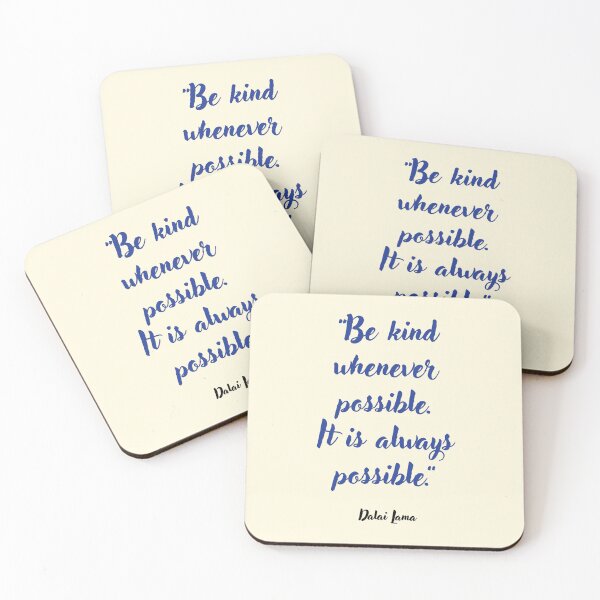 "Be kind
whenever
possible.
"Be kind
whenever
possible.
It is always
possible."
"Be kind
whenever
possible.
It is always
possible
Dalai Lama
"Be kind
whenever
possible.
It is always
possible."
Dalai Lama